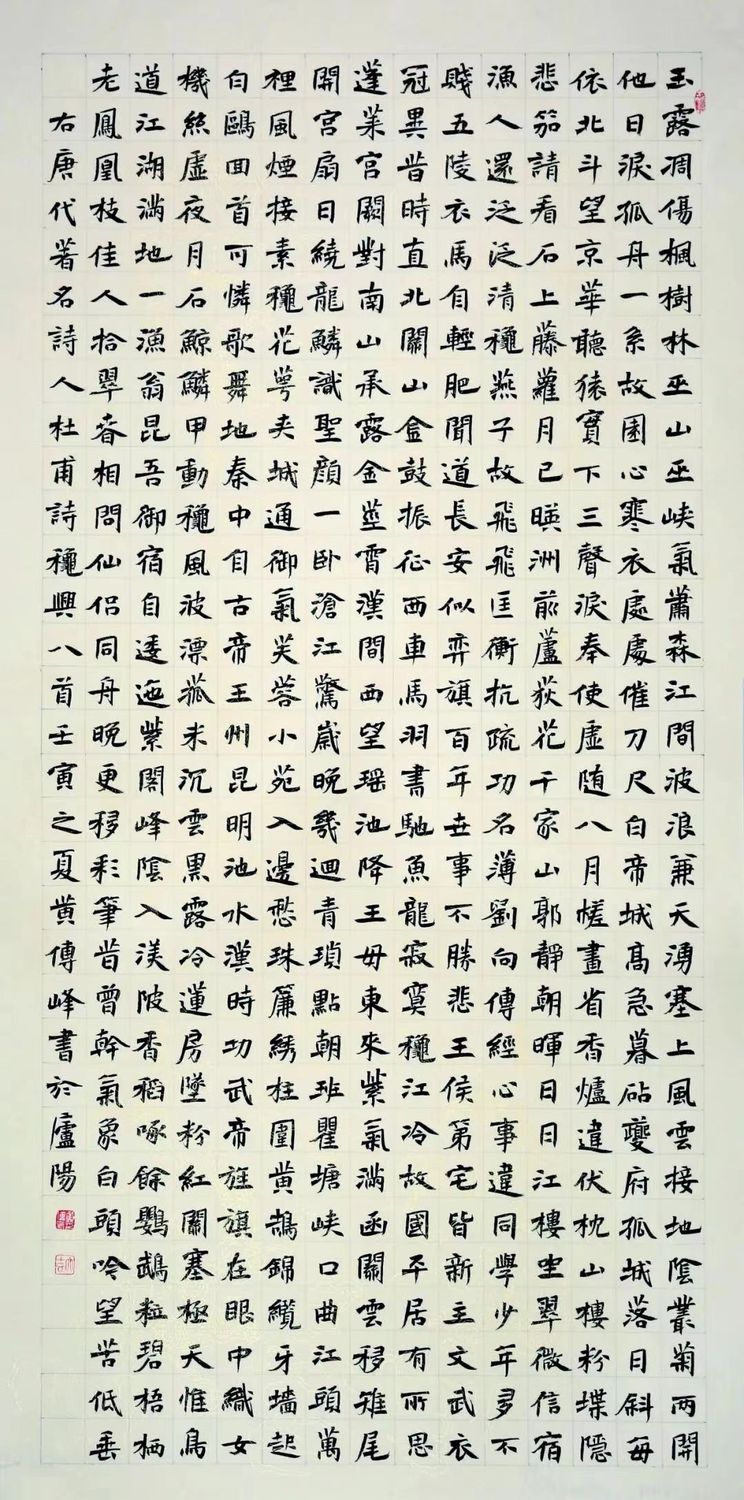 玉露凋傷楓樹林巫山巫峽氣蕭森江間波浪兼天湧塞上風雲接地陰叢菊兩開
他日淚孤舟一系故園心寒衣處處催刀尺白帝城高急暮砧夔府孤城落日斜每
依北斗望京華聽猿實下三聲淚奉使虛随八月槎畫省香爐違伏枕山樓粉堞隱
悲笳請看石上藤蘿月已暎洲前蘆荻花千家山郭靜朝暉日日江樓坐翠微信宿
漁人還泛泛清穐燕子故飛飛匡衡抗疏功名薄劉向傳經心事違同學少年多不
賤五陵衣馬自輕肥聞道長安似弈旗百年世事不勝悲王侯第宅皆新主文武衣
冠異昔時直北關山金鼓振征西車馬羽書馳魚龍寂寞穐江冷故國平居有所思
蓬萊宮闕對南山承露金莖霄漢間西望瑶池降王母東來紫氣滿函關雲移雉尾
開宮扇日繞龍鱗識聖顏一卧滄江驚歲晚幾迴青瑣點朝班瞿塘峽口曲江頭萬
裡風煙接素穐花萼夹城通御氣芙蓉小苑入邊愁珠簾綉柱圍黃鵠錦纜牙墻起
白鷗回首可憐歌舞地秦中自古帝王州昆明池水漢時功武帝旌旗在眼中織女
機絲虛夜月石鯨鱗甲動穐風波漂菰米沉雲黑露冷蓮房墜粉紅關塞極天惟鳥
道江湖滿地一漁翁昆吾御宿自逶迤紫閣峰陰入渼陂香稻啄餘鸚鵡粒碧梧栖
老鳳凰枝佳人拾翠春相問仙侶同舟晚更移彩筆昔曾幹氣象白頭吟望苦低垂
右唐代著名詩人杜甫詩穐興八首壬寅之夏黃傳峰書於廬陽